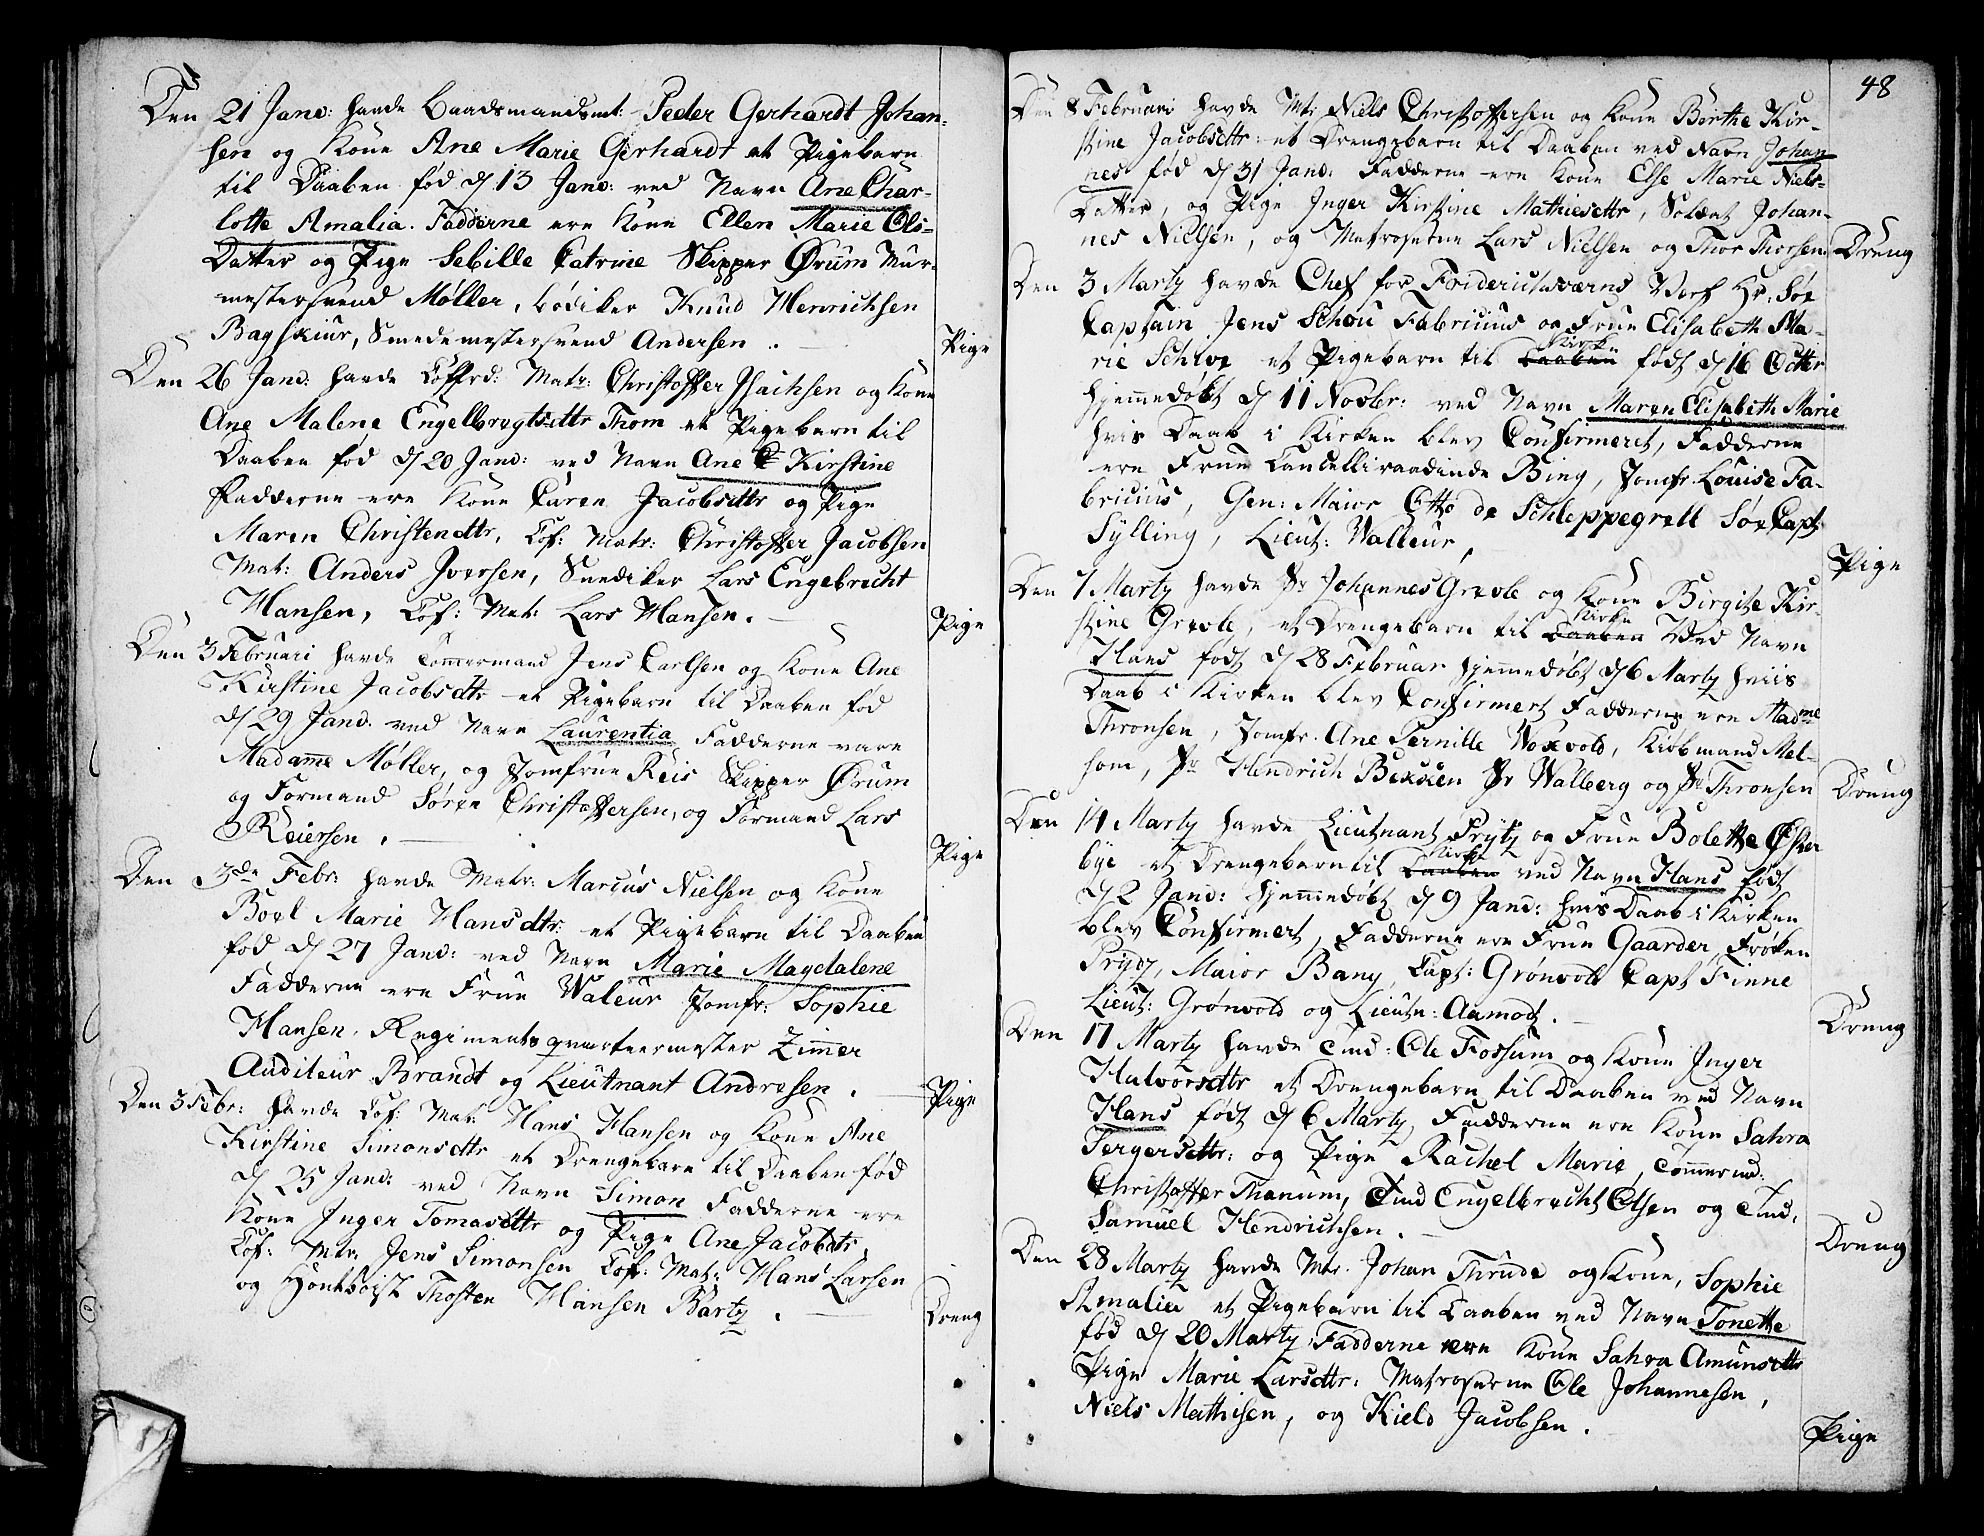 Den 21 Janv: havde Baadsmandsmt: Peder Gerhardt Johan-
sen og Kone Ane Marie Gerhardt et Pigebarn
til Daaben fød d 13 Janv: ved Navn Ane Char-
lotte Amalia. Fadderne ere Kone Ellen Marie Ols-
Datter og Pige Sebille Catrine Skipper Ørum Mur-
mestersvend Møller, bødiker Knud Henrichsen
Bagskiur, Smedemestersvend Andersen.
Pige
Den 26 Janv: havde Coffrd: Matr: Christoffer Isachsen og Kone
Ane Malene Engelbregtsdttr Thom et Pigebarn til
Daaben fød d 20 Janv: ved Navn Ane Kirstine
Fadderne ere Kone Caren Jacobsdttr og Pige
Maren Christendttr, Cof: Matr: Christoffer Jacobsen
Mat: Anders Iversen, Snediker Lars Engebrecht
Hansen, Cof: Mat: Lars Hansen.
Pige
Den 3 Februari havde Tømmermand Jens Carlsen og Kone Ane
Kirstine Jacobsdtr et Pigebarn til Daaben fød
d 29 Janv: ved Navn Laurentia Fadderne vare
Madamme Møller, og Jomfrue Reis Skipper Ørum
og Formand Søren Christoffersen, og Formand Lars
Reiersen.
Pige
Den 3de Febr: havde Matr: Marcus Nielsen og Kone
Boel Marie Hansdtr: et Pigebarn til Daaben
fød d 27 Janv: ved Navn Marie Magdalene
Fadderne ere Frue Waleur Jomfr: Sophie
Hansen, Regimentsqvarteermester Zimmer
Auditeur Brandt og Lieutnant Andresen.
Pige
Den 3 Febr: havde Cof: Mat: Hans Hansen og Kone Ane
Kirstine Simonsdttr et Drengebarn til Daaben fød
d 25 Janv: ved Navn Simon Fadderne ere
Kone Inger Tomasdttr og Pige Ane Jacobdtr,
Cof: Mtr: Jens Simonsen Cof: Mat: Hans Larsen
og Thosten Hansen Bartz.
Dreng
48
Den 8 Februari havde Mt: Niels Christoffersen og Kone Berthe Kir-
stine Jacobsdttr: et Drengebarn til Daaben ved Navn Johan-
nes fød d 31 Janv: Fadderne ere Kone Else Marie Niels-
Datter, og Pige Inger Kirstine Mathiesdttr, Soldat Johan-
nes Nielsen, og Matroserne Lars Nielsen og Thor Thorsen.
Dreng
Den 3 Marty havde Chef for Fridrichsværns Verf Hr: Søe
Captain Jens Schou Fabricius og Frue Elisabeth Ma-
rie Schive et Pigebarn til Daaben Kirke født d 16 Octbr
hjemmedøbt d 11 Novbr: ved Navn Maren Elisabeth Marie
hvis Daab i Kirken blev Confirmeret, Fadderne
ere Frue Cancelliraadinde Bing, Jomfr. Louise Fa-
bricius, Gen: Maior Otto de Schleppegrell Søe Capt:
Sylling, Lieut: Walleur,
Pige
Den 7 Marty havde Sr Johannes Grevle og Kone Birgite Kir-
stine Grevle, et Drengebarn til Daaben Kirke Ved Navn
Hans født d 28 Februar hjemmedøbt d 6 Marty hviis
Daab i Kirken blev Confirmert Fadderne ere Madme
Thronsen, Jomfr. Ane Pernille Woxvold, Kiøbmand Mel-
som, Sr Hendrich Bekken Sr Walberg og Sr Thronsen
Dreng
Den 14 Marty havde Lieutnant Prytz og Frue Bolette Øster-
bye et Drengebarn til Daaben Kirke ved Navn Hans født
d 2 Janv: hjemmedøbt d 9 Janv: hvis Daab i Kirken
blev Confirmert, Fadderne ere Frue Gaarder, Frøken
Prydz, Maior Bang, Capt: Grønvold Capt Finne
Lieut: Grønvold og Lieutn: Aamodt.
Dreng
Den 17 Marty havde Tmd: Ole Fossum og Kone Inger
Halvorsdttr et Drengebarn til Daaben ved Navn
Hans født d 6 Marty, Fadderne ere Kone Sahra
Tergersdttr: og Pige Rachel Marie, Tømmermd:
Christoffer Thanum, Tmd Engelbrecht Olsen og Tmd,
Samuel Hendrichsen.
Dreng
Den 28 Marty havde Mtr. Johan Thrude og Kone, Sophie
Amalia et Pigebarn til Daaben ved Navn Tonette
fød d 20 Marty. Fadderne ere Kone Sahra Amunsdttr
Pige Marie Larsdttr: Matroserne Ole Johannesen,
Niels Mathisen, og Kield Jacobsen.
Pige